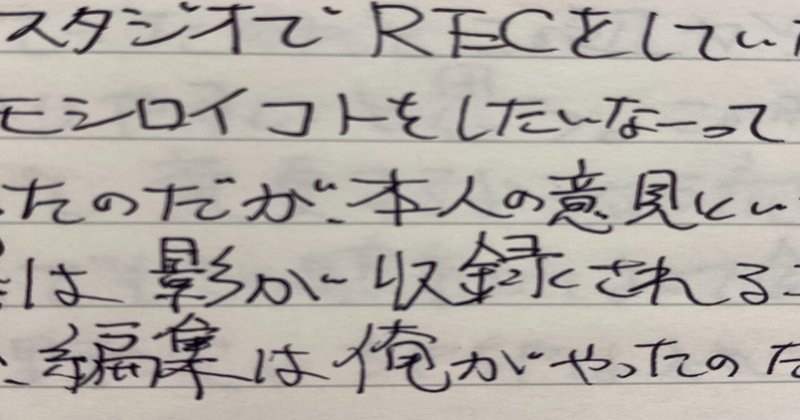 スタジオでRECをしてい
モシロイコトをしたいなーって
たのだが、本人の意見とい
は影が収録される
、編集は俺がやったのだ